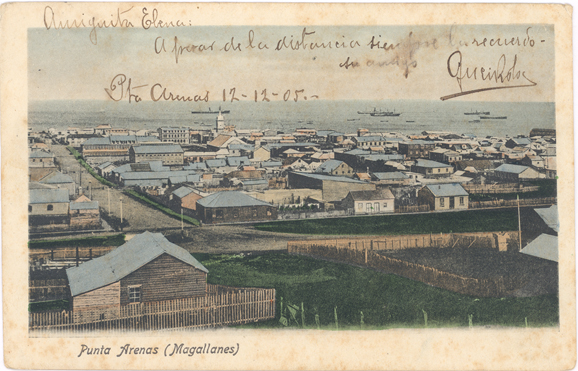 Amiguita Elena:
A pesar de la distancia siempre la recuerdo.
su amigo
Queirolo
Pta Arenas 12-12-05.-
Punta Arenas (Magallanes)